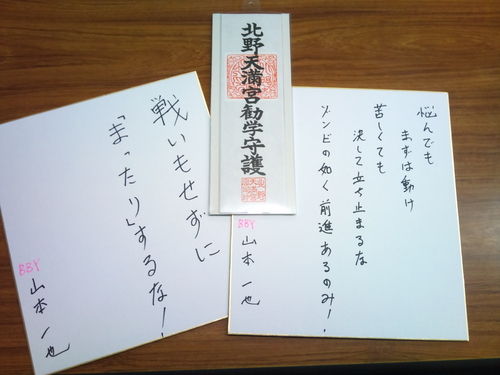 北野天満宮勧学守護
悩んでも
まずは動け
苦しくても
決して立ち止まるな
ゾンビの如く前進あるのみ!
BBY 山本一也
戦いもせずに
「まったり」するな!
BBY 山本一也